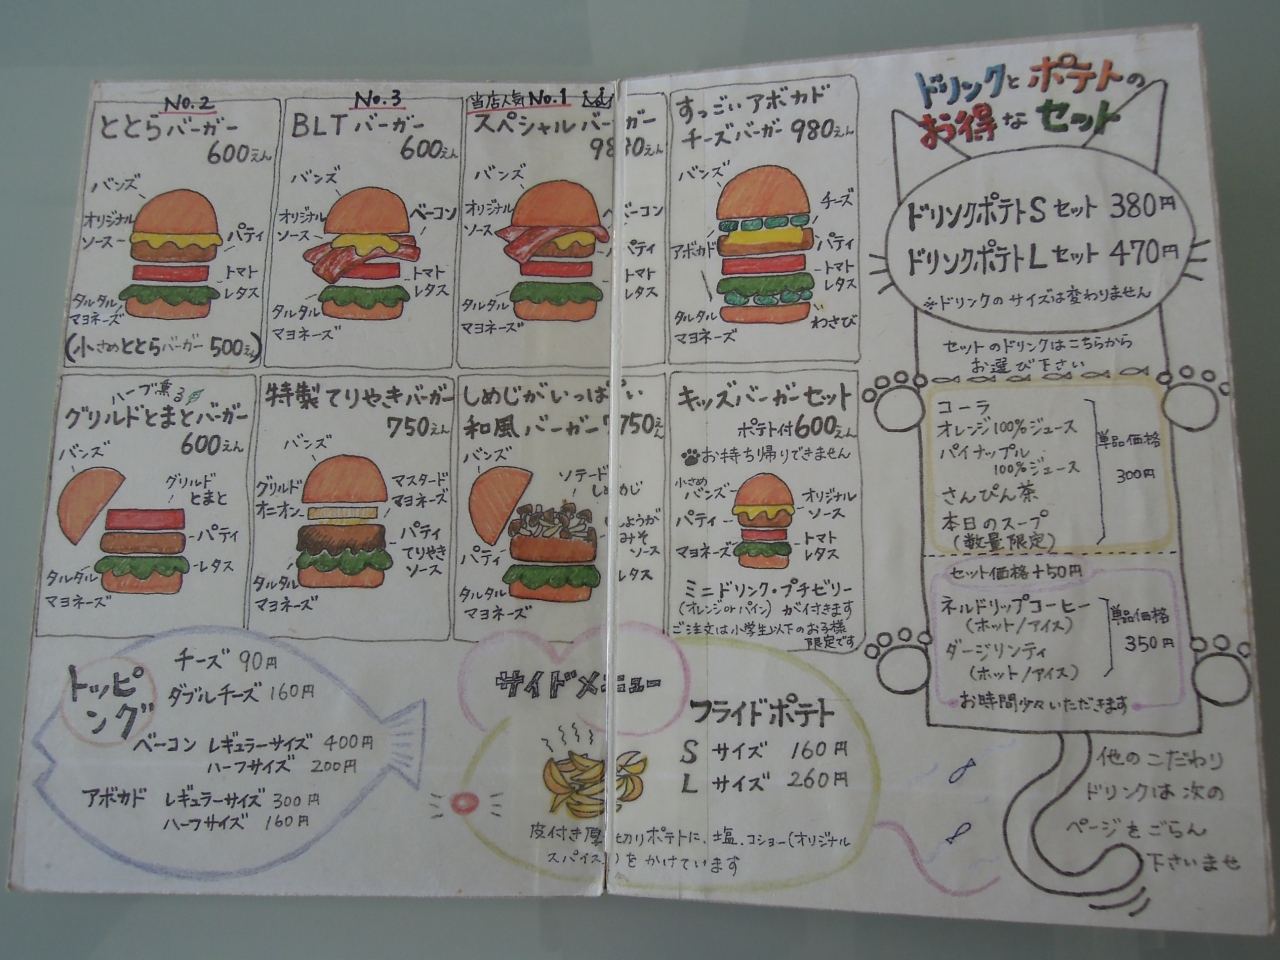 No.2
ととらバーガー
600えん
バンズ
オリジナル
ソース
パティ
トマト
レタス
タルタル
マヨネーズ
(小さめととらバーガー 500えん)
No.3
BLTバーガー
600えん
バンズ
オリジナル
ソース
ベーコン
トマト
レタス
タルタル
マヨネーズ
当店人気No.1
スペシャルバーガー
980えん
バンズ
オリジナル
ソース
ベーコン
パティ
トマト
レタス
タルタル
マヨネーズ
すっごいアボカド
チーズバーガー 980えん
バンズ
チーズ
アボカド
パティ
トマト
レタス
タルタル
マヨネーズ
わさび
ハーブ薫る
グリルドとまとバーガー
600えん
バンズ
グリルド
とまと
パティ
レタス
タルタル
マヨネーズ
特製てりやきバーガー
750えん
バンズ
グリルド
オニオン
マスタード
マヨネーズ
パティ
てりやき
ソース
タルタル
マヨネーズ
しめじがいっぱい
和風バーガー 750えん
バンズ
ソテード
しめじ
しょうが
みそ
ソース
パティ
レタス
タルタル
マヨネーズ
キッズバーガーセット
ポテト付600えん
お持ち帰りできません
小さめ
バンズ
オリジナル
ソース
パティ
トマト
レタス
マヨネーズ
ミニドリンク・プチゼリー
(オレンジorパイン) が付きます
ご注文は小学生以下のお子様
限定です
トッピ
ング
チーズ 90円
ダブルチーズ 160円
ベーコン レギュラーサイズ 400円
ハーフサイズ 200円
アボカド レギュラーサイズ 300円
ハーフサイズ 160円
サイドメニュー
フライドポテト
S サイズ 160円
L サイズ 260円
皮付き厚切りポテトに、塩、コショー(オリジナル
スパイス)をかけています
ドリンクとポテトの
お得なセット
ドリンクポテトSセット 380円
ドリンクポテトLセット 470円
※ドリンクのサイズは変わりません
セットのドリンクはこちらから
お選び下さい
コーラ
オレンジ100%ジュース
パイナップル
100%ジュース
さんぴん茶
本日のスープ
(数量限定)
単品価格
300円
セット価格+50円
ネルドリップコーヒー
(ホット/アイス)
ダージリンティ
(ホット/アイス)
単品価格
350円
お時間少々いただきます
他のこだわり
ドリンクは次の
ページをごらん
下さいませ